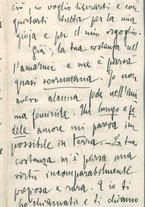 ciò, io voglio
quotarti questa per la mia
gioia e per il mio orgoglio.
Già, la tua costanza nell'
amarmi e me a parsa
quasi sovrumana. Io non
avevo alcuna fede nell'ani
ma feminile. Un lungo e fe
dele amore mi pareva im
possibile in terra. La tua
costanza m'è parsa una
virtù incomparabilmente
preziosa e rara. E io ti
ho chiamata e ti chiamo